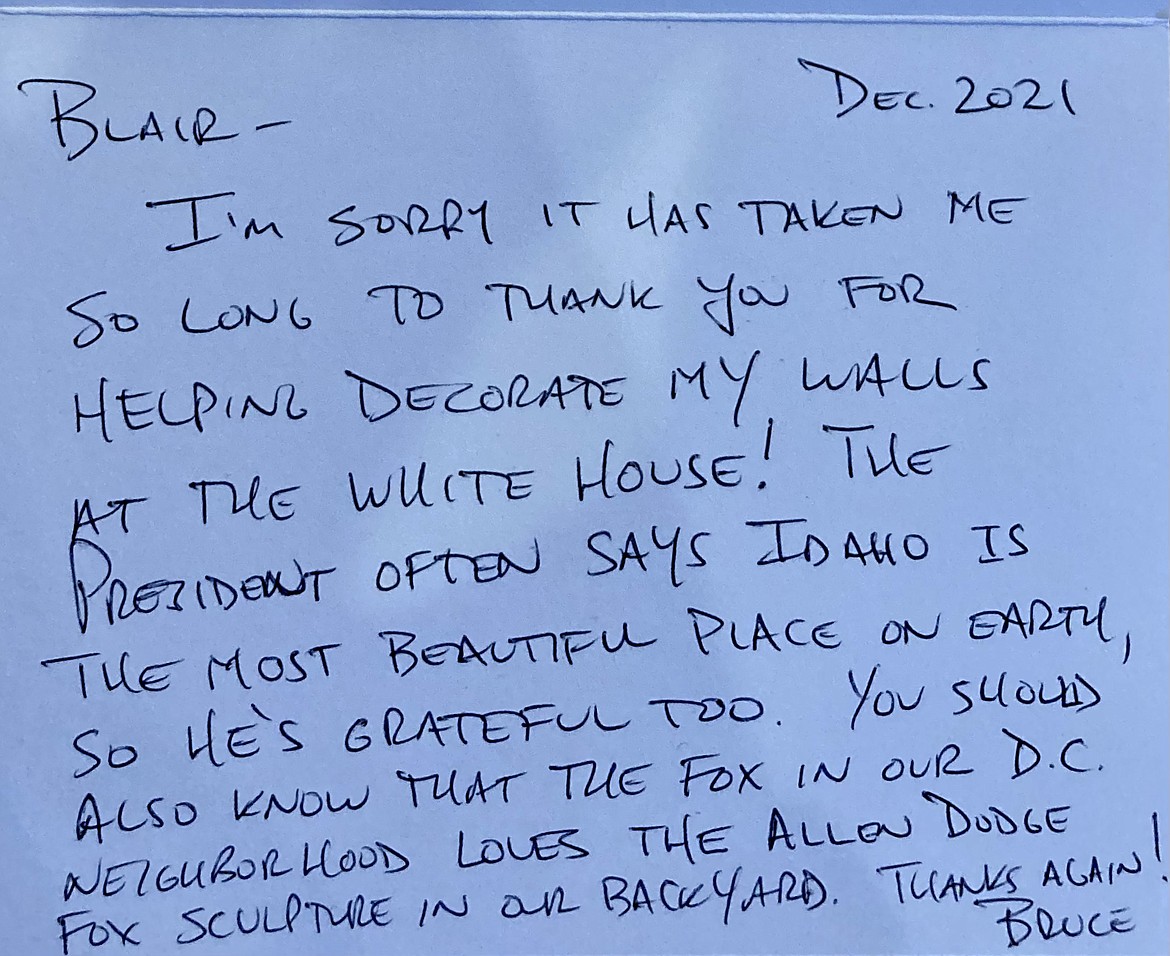 DEC. 2021
BLAIR-
I'M SORRY IT HAS TAKEN ME
SO LONG TO THANK YOU FOR
HELPING DECORATE MY WALLS
AT THE WHITE HOUSE! THE
PRESIDENT OFTEN SAYS IDAHO IS
THE MOST BEAUTIFUL PLACE ON EARTH,
SO HE'S GRATEFUL TOO. YOU SHOULD
ALSO KNOW THAT THE FOX IN OUR D.C.
NEIGHBORHOOD LOVES THE ALLEN DODGE
FOX SCULPTURE IN OUR BACKYARD. THANKS AGAIN!
BRUCE